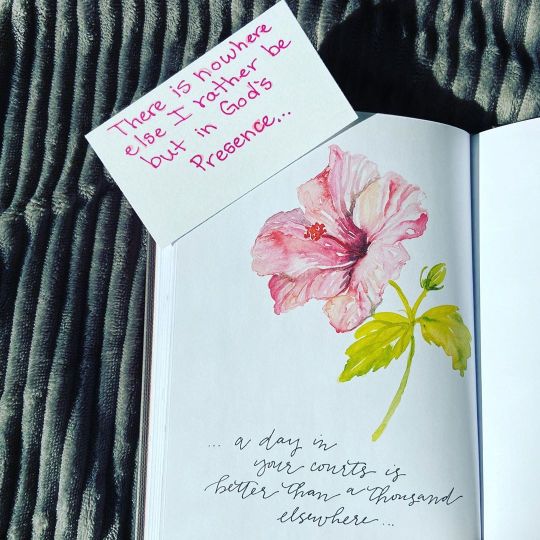 There is nowhere
else I rather be
but in God's
Presence...
... a day in
your courts is
better than a thousand
elsewhere...